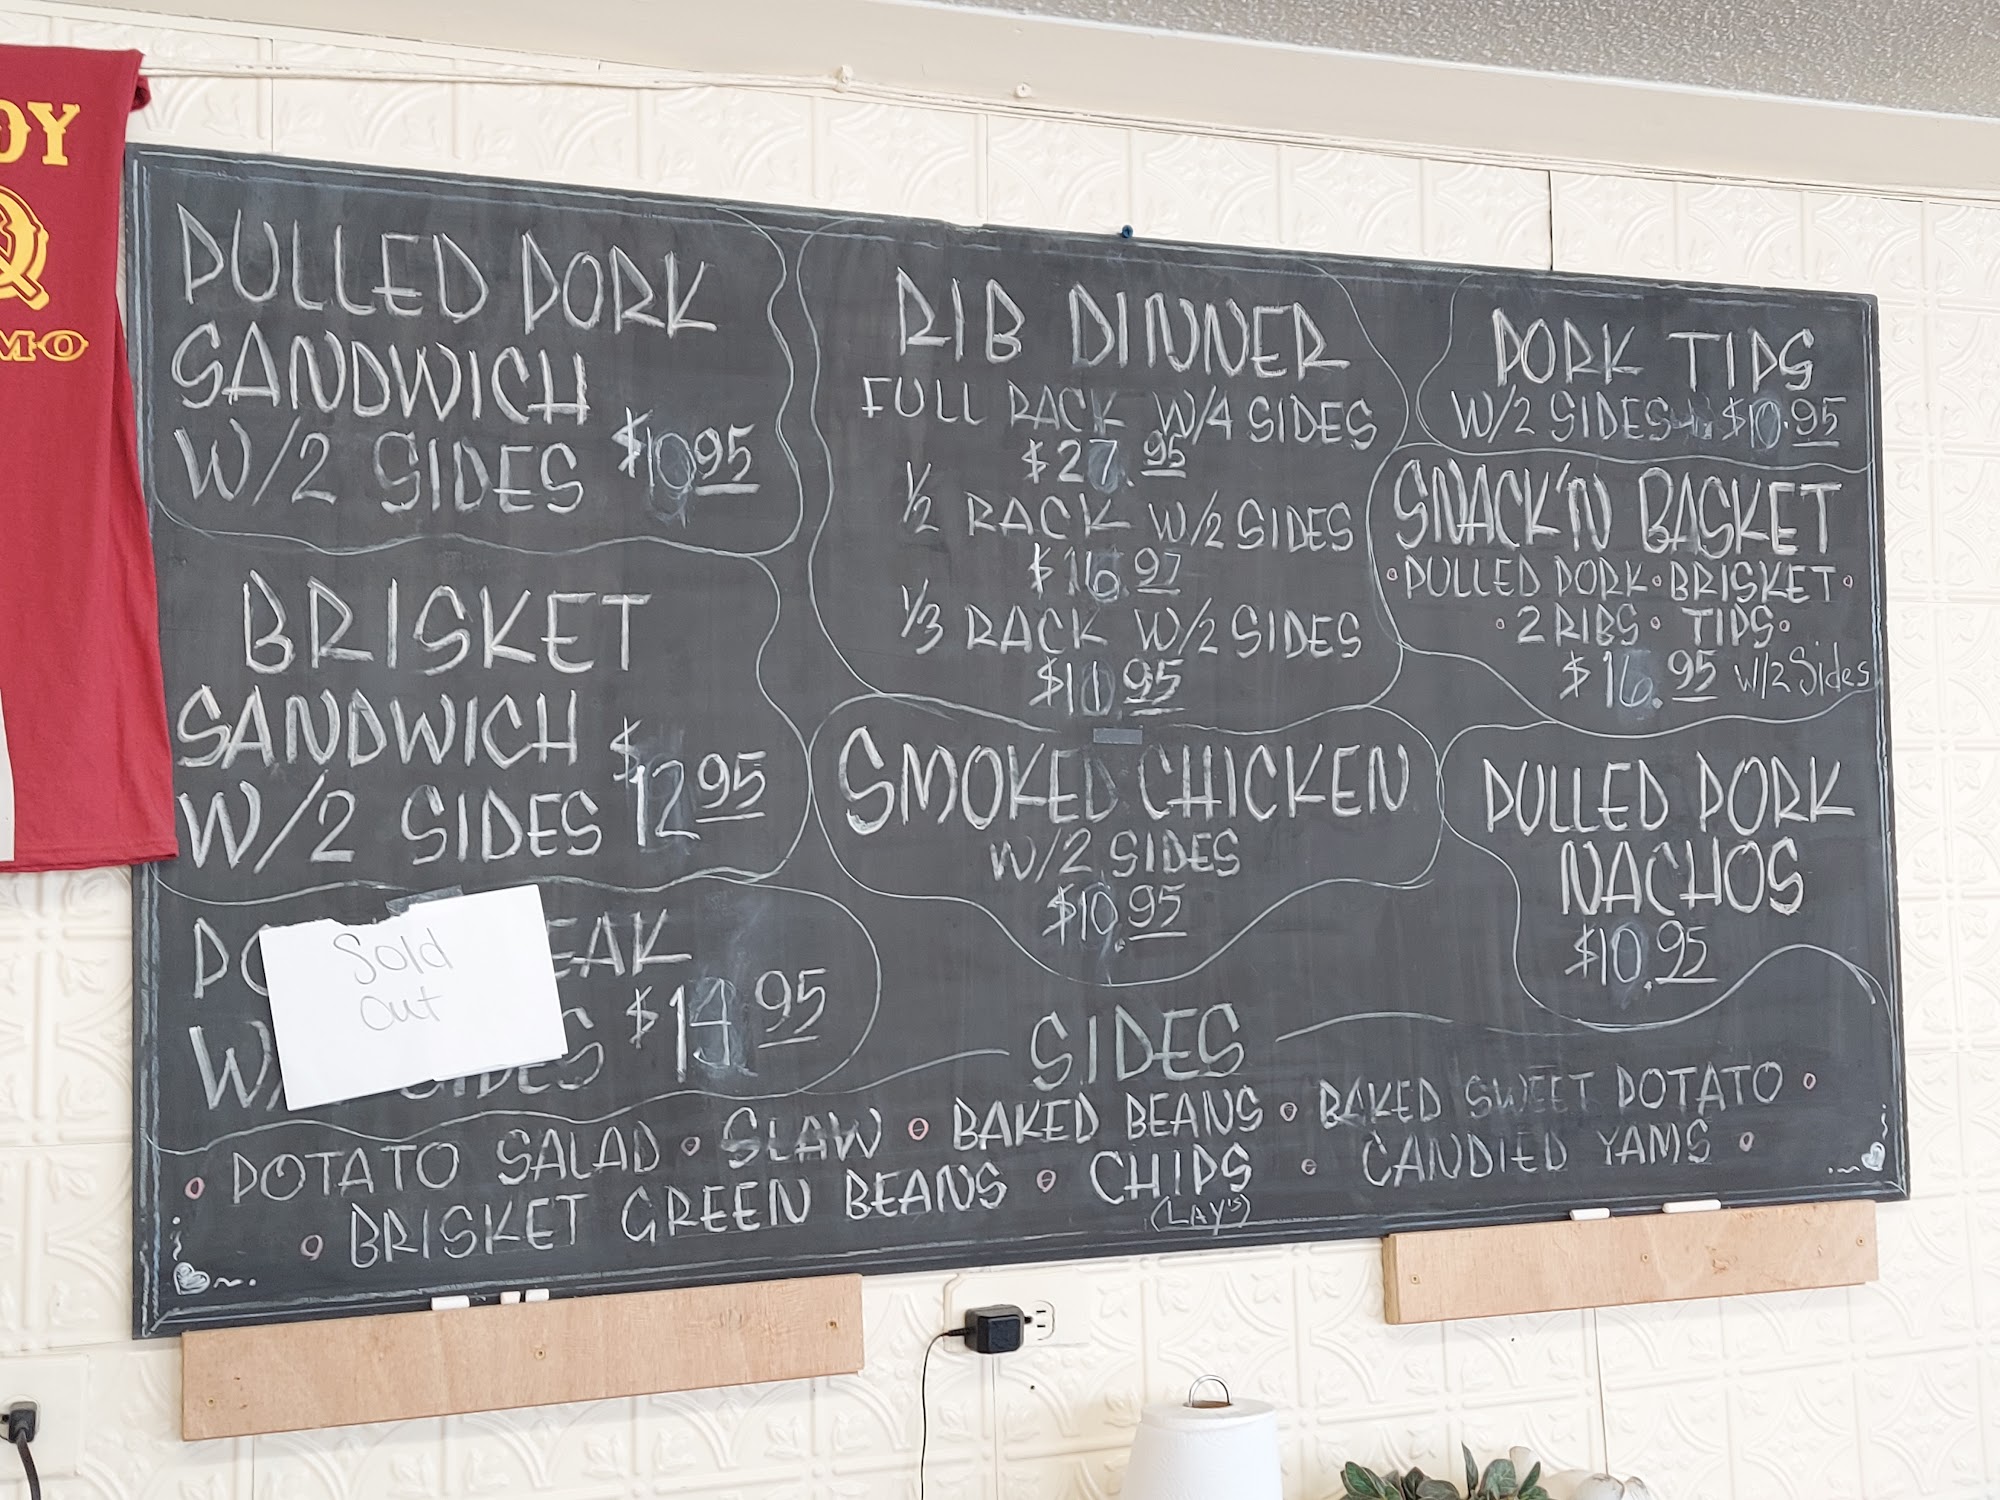 PULLED PORK
SANDWICH
W/2 SIDES $10.95
BRISKET
SANDWICH
W/2 SIDES $12.95
$14.95
Sold
Out
RIB DINNER
FULL RACK W/4 SIDES
$27.95
1/2 RACK W/2 SIDES
$16.97
1/3 RACK W/2 SIDES
$10.95
SMOKED CHICKEN
W/2 SIDES
$10.95
PORK TIPS
W/2 SIDES $10.95
SNACK'N BASKET
• PULLED PORK • BRISKET •
• 2 RIBS • TIPS •
$16.95 W/2 Sides
PULLED PORK
NACHOS
$10.95
SIDES
• POTATO SALAD • SLAW • BAKED BEANS • BAKED SWEET POTATO •
• BRISKET GREEN BEANS • CHIPS • CANDIED YAMS •
(LAY'S)